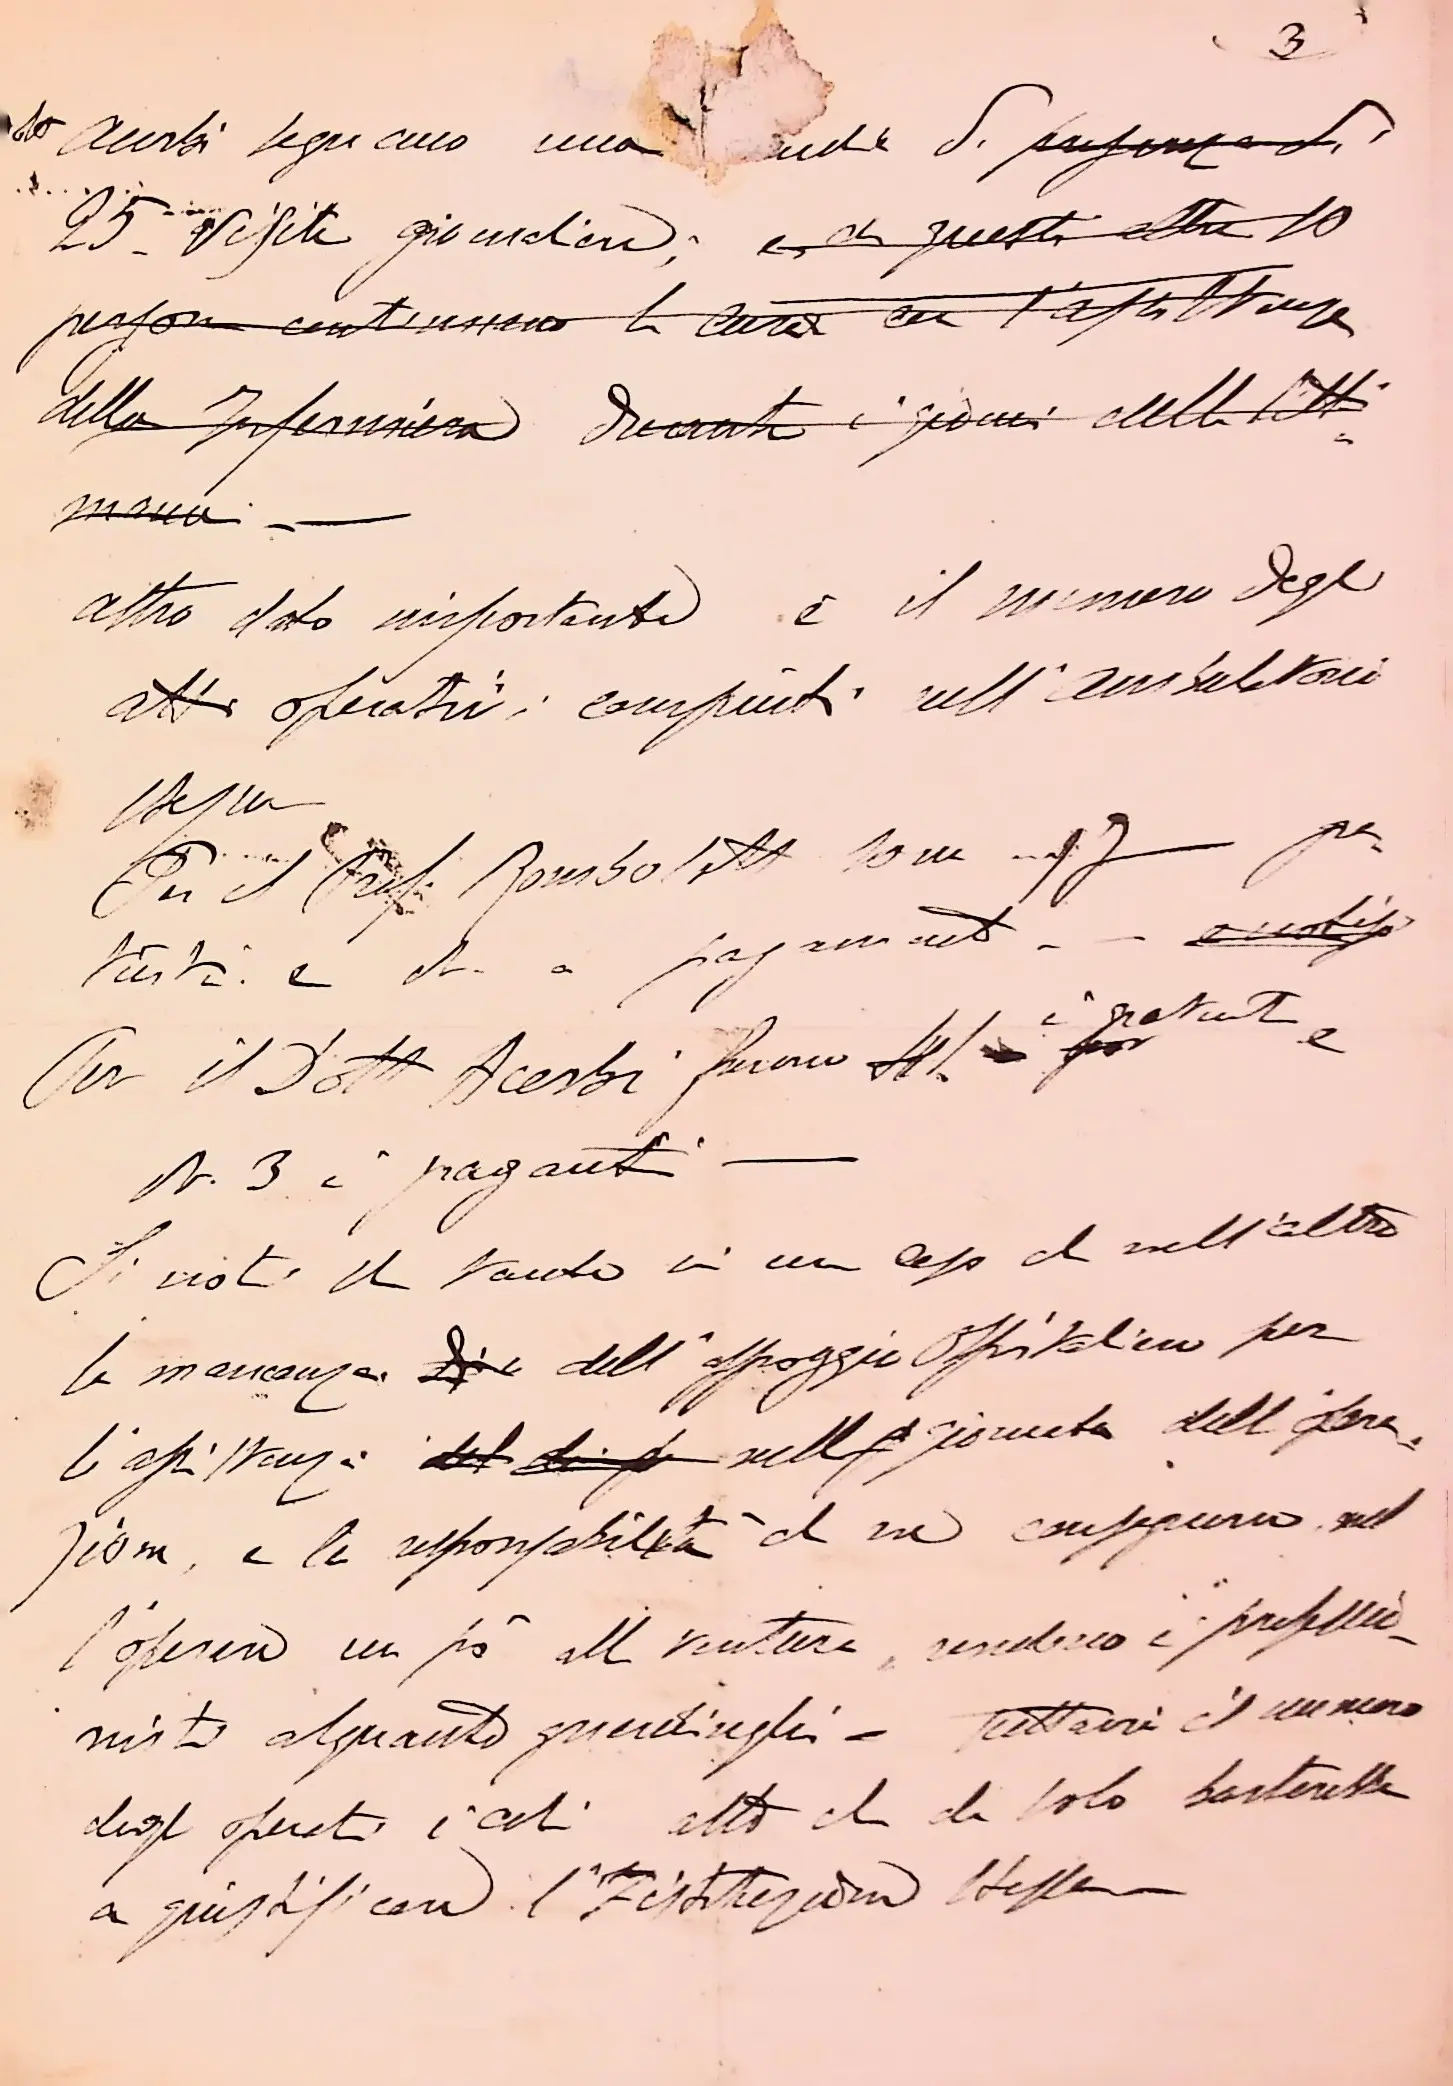 3
Acerbi segnano una di presenza di
25 visite giornaliere; e di questi altre 10
persone continuano la cura con l'assistenza
della Infermiera durante i giorni della setti-
mana. —
altro dato importante è il numero degli
atti operativi compiuti nell'Ambulatorio
stesso
Per il Prof. Rombolotti sono 97 — gra-
tuiti e N. a pagamento - -
Per il Dott Acerbi furono i gratuiti e
N. 3 i paganti —
Si noti che tanto in un caso che nell'altro
la mancanza dell'appoggio Ospitaliero per
l'assistenza nella giornata dell'opera-
zione, e la responsabilità che ne consegue nel
l'operare un pò alla ventura, rendono i professio-
nisti alquanto guardinghi - Tuttavia il numero
degli operati è così alto che da solo basterebbe
a giustificare l'Istituzione stessa —